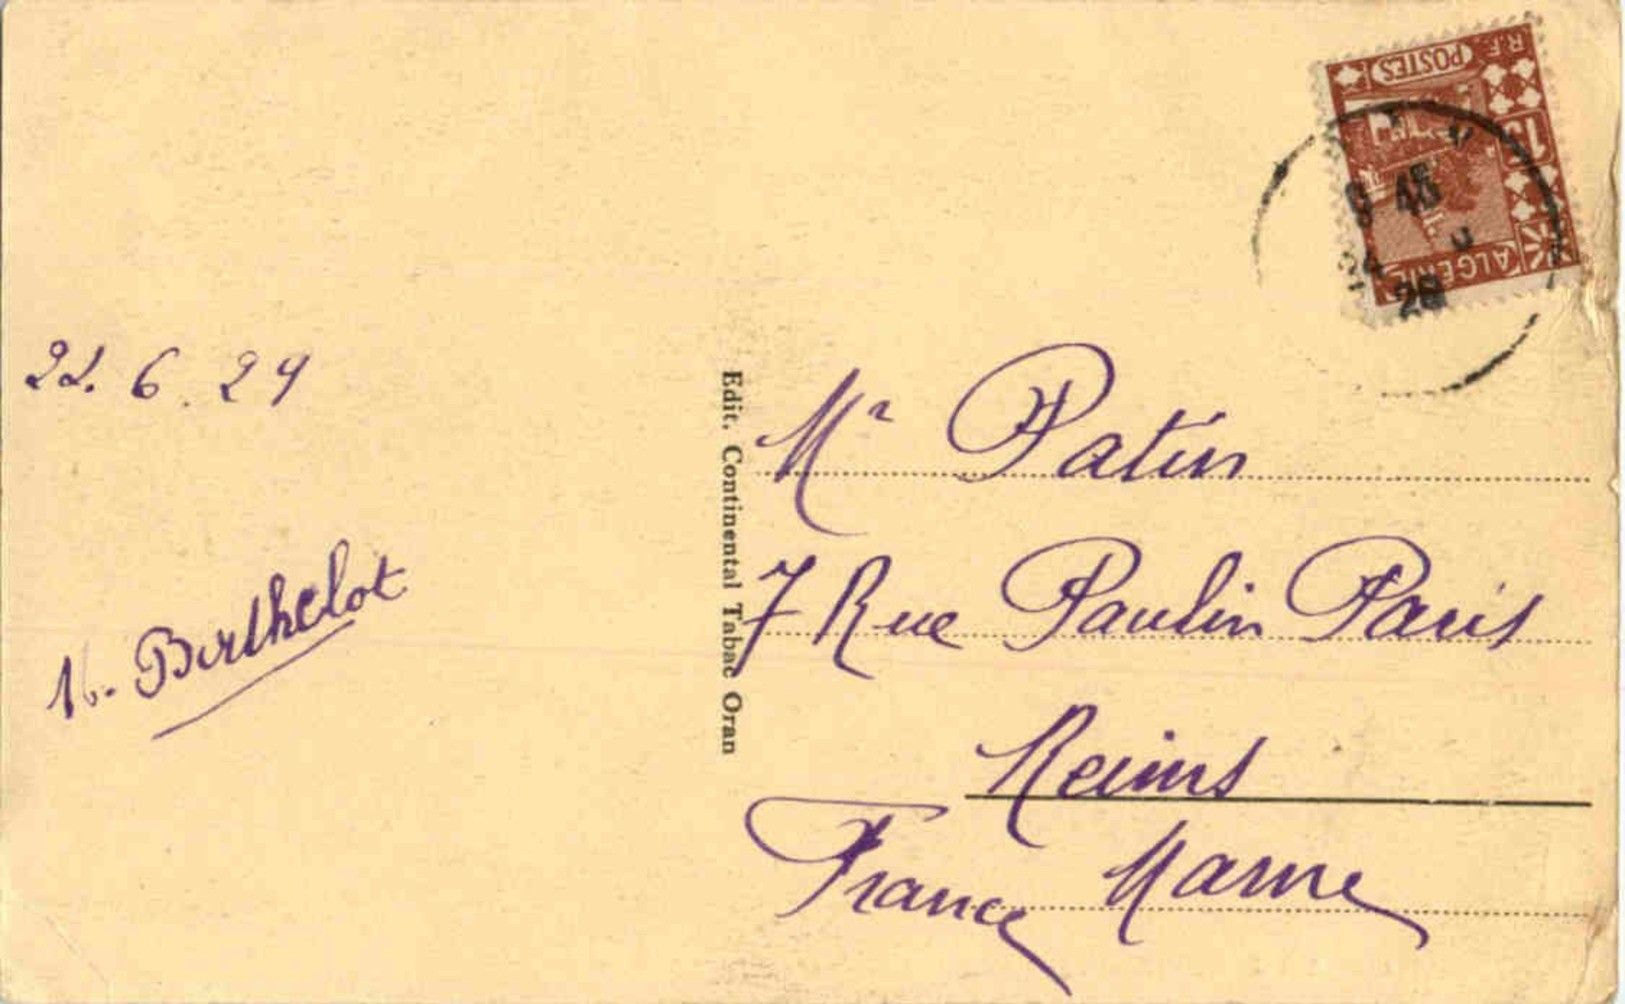 R.F.
POSTES
15
ALGÉRIE
9 45
24
22. 6. 29
Edit. Continental Tabac Oran
Mr Patin
7 Rue Paulin Paris
Reims
Marne
France
Berthelot